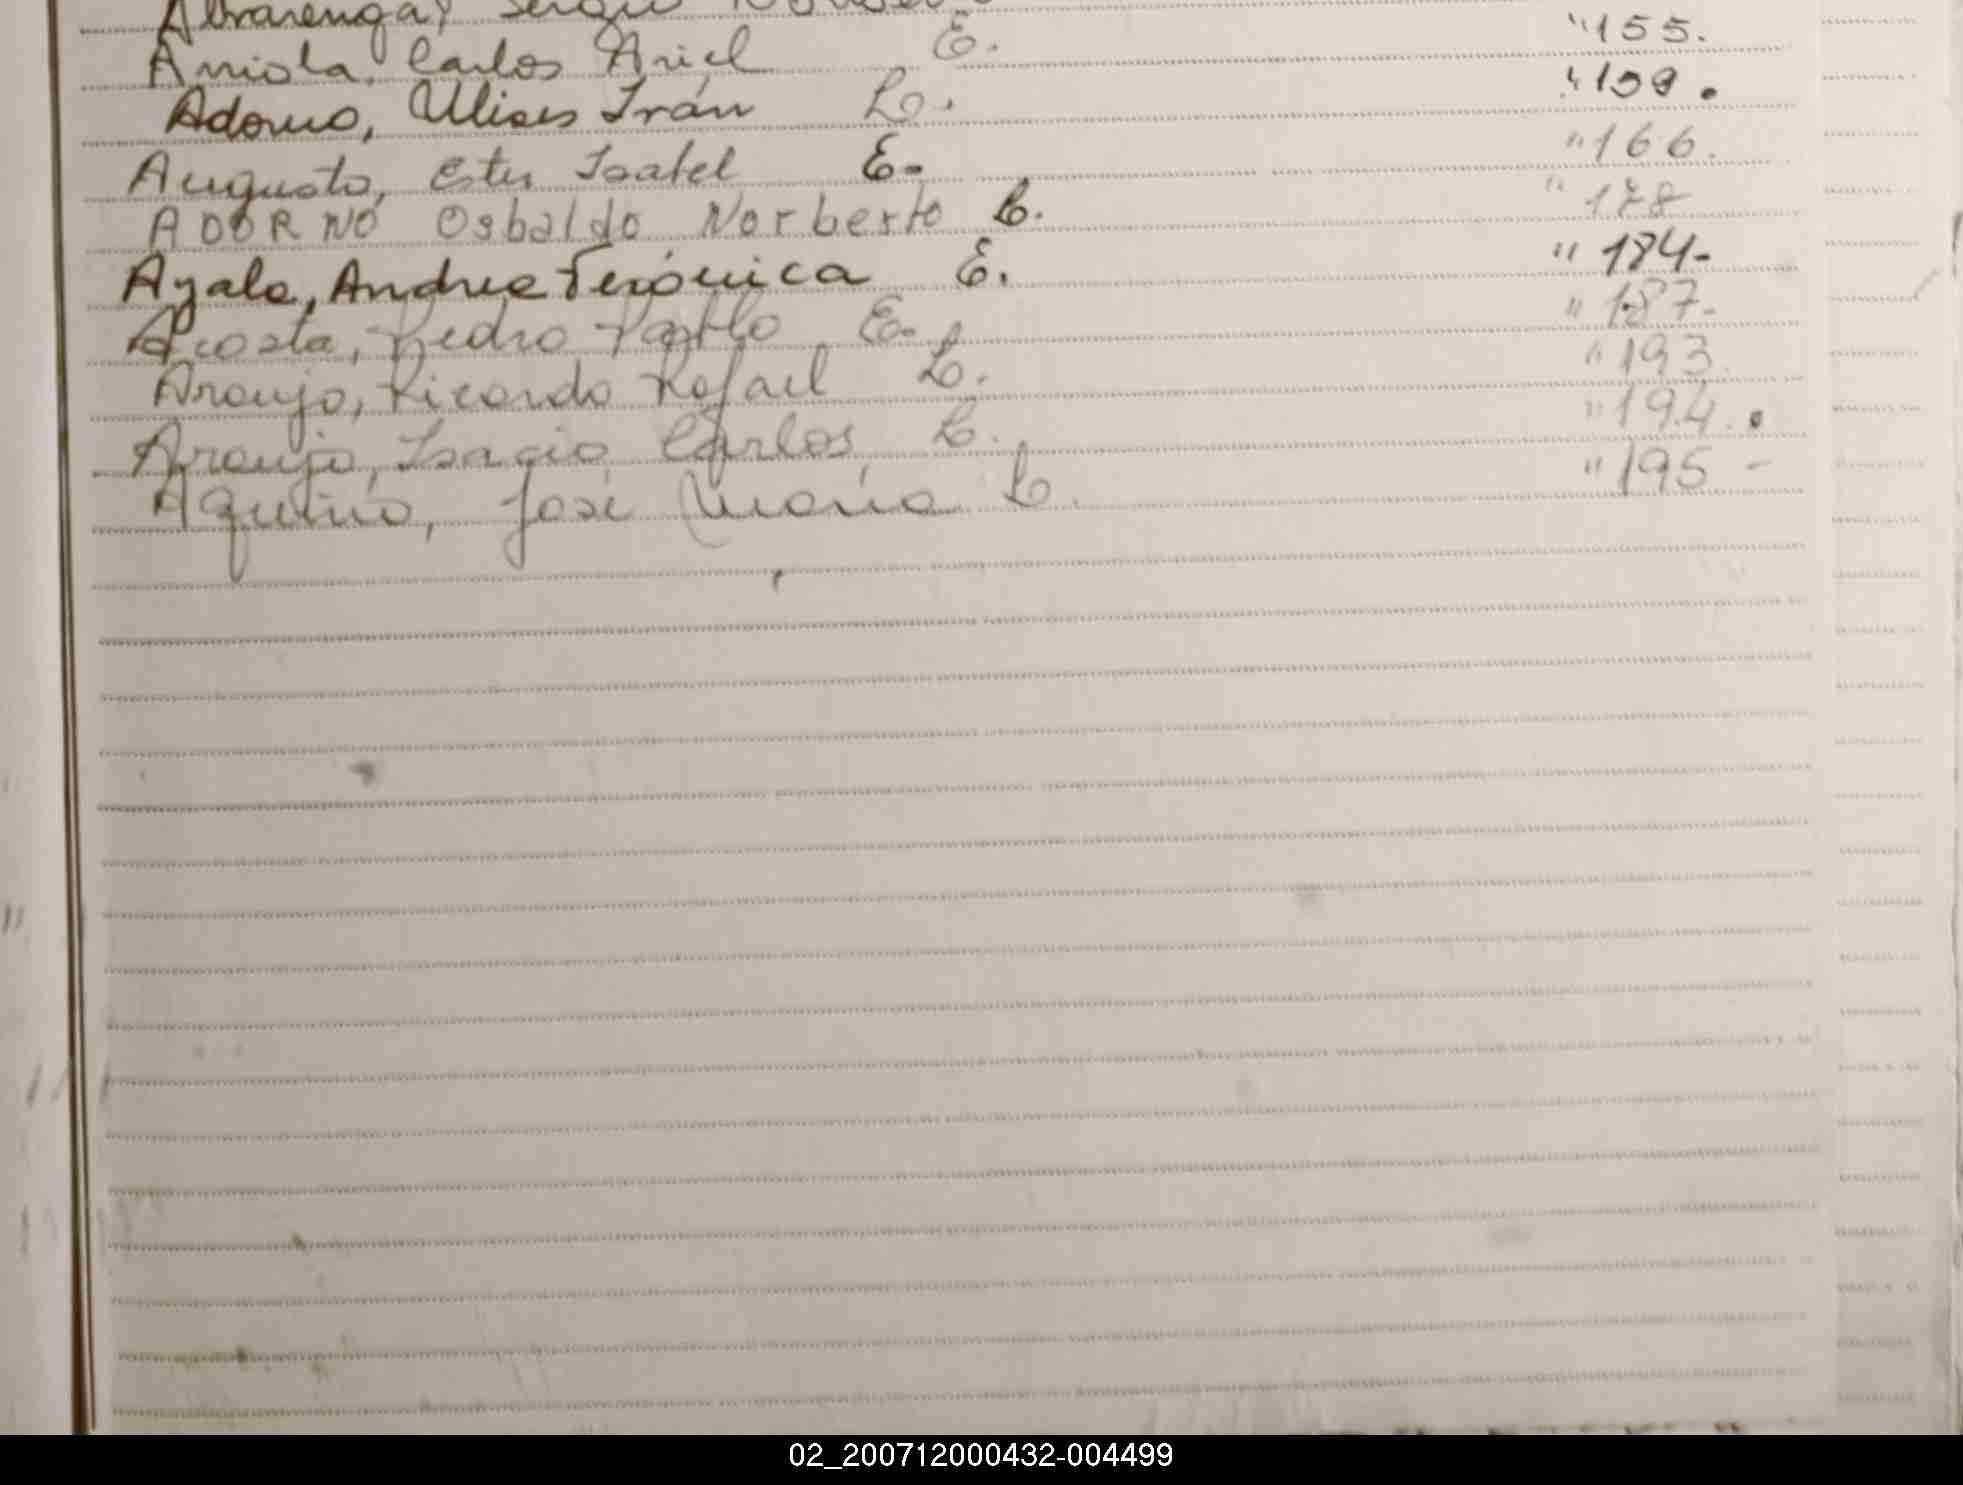 Alvarenga, Sergio
Arriola, Carlos Ariel E. "155.
Adorno, Ulises Irán L. "159.
Augusto, Ester Isabel E. "166.
ADORNO Osbaldo Norberto L. "178
Ayala, Andrea Verónica E. "184-
Acosta, Pedro Pablo E. "187-
Araujo, Ricardo Rafael L. "193.
Araujo, Isacio Carlos L. "194.
Aquino, José María L. "195 -
02_200712000432-004499